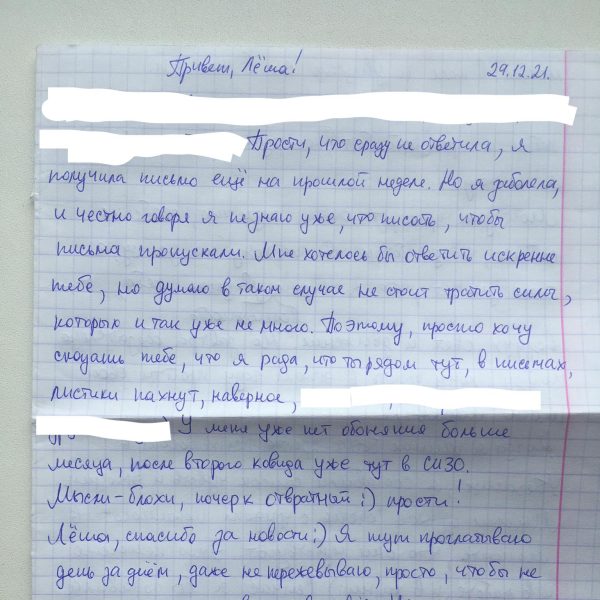 Привет, Лёша! 29.12.21.
Прости, что сразу не ответила, я
получила письмо ещё на прошлой неделе. Но я заболела,
и честно говоря я не знаю уже, что писать, чтобы
письма пропускали. Мне хотелось бы ответить искренне
тебе, но думаю в таком случае не стоит тратить силы,
которых и так уже не много. Поэтому, просто хочу
сказать тебе, что я рада, что ты рядом тут, в письмах,
листики пахнут, наверное,
У меня уже нет обоняния больше
месяца, после второго ковида уже тут в СИЗО.
Мысли-блохи, почерк отвратный :) прости!
Лёша, спасибо за новости :) Я тут проглатываю
день за днём, даже не пережёвываю, просто, чтобы не